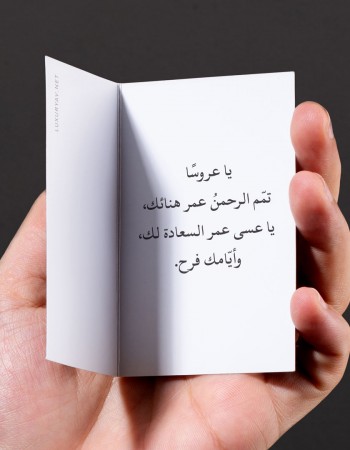 LUXURYBY.NET
يا عروسًا
تمّم الرحمنُ عمر هنائك،
يا عسى عمر السعادة لك،
وأيّامك فرح.